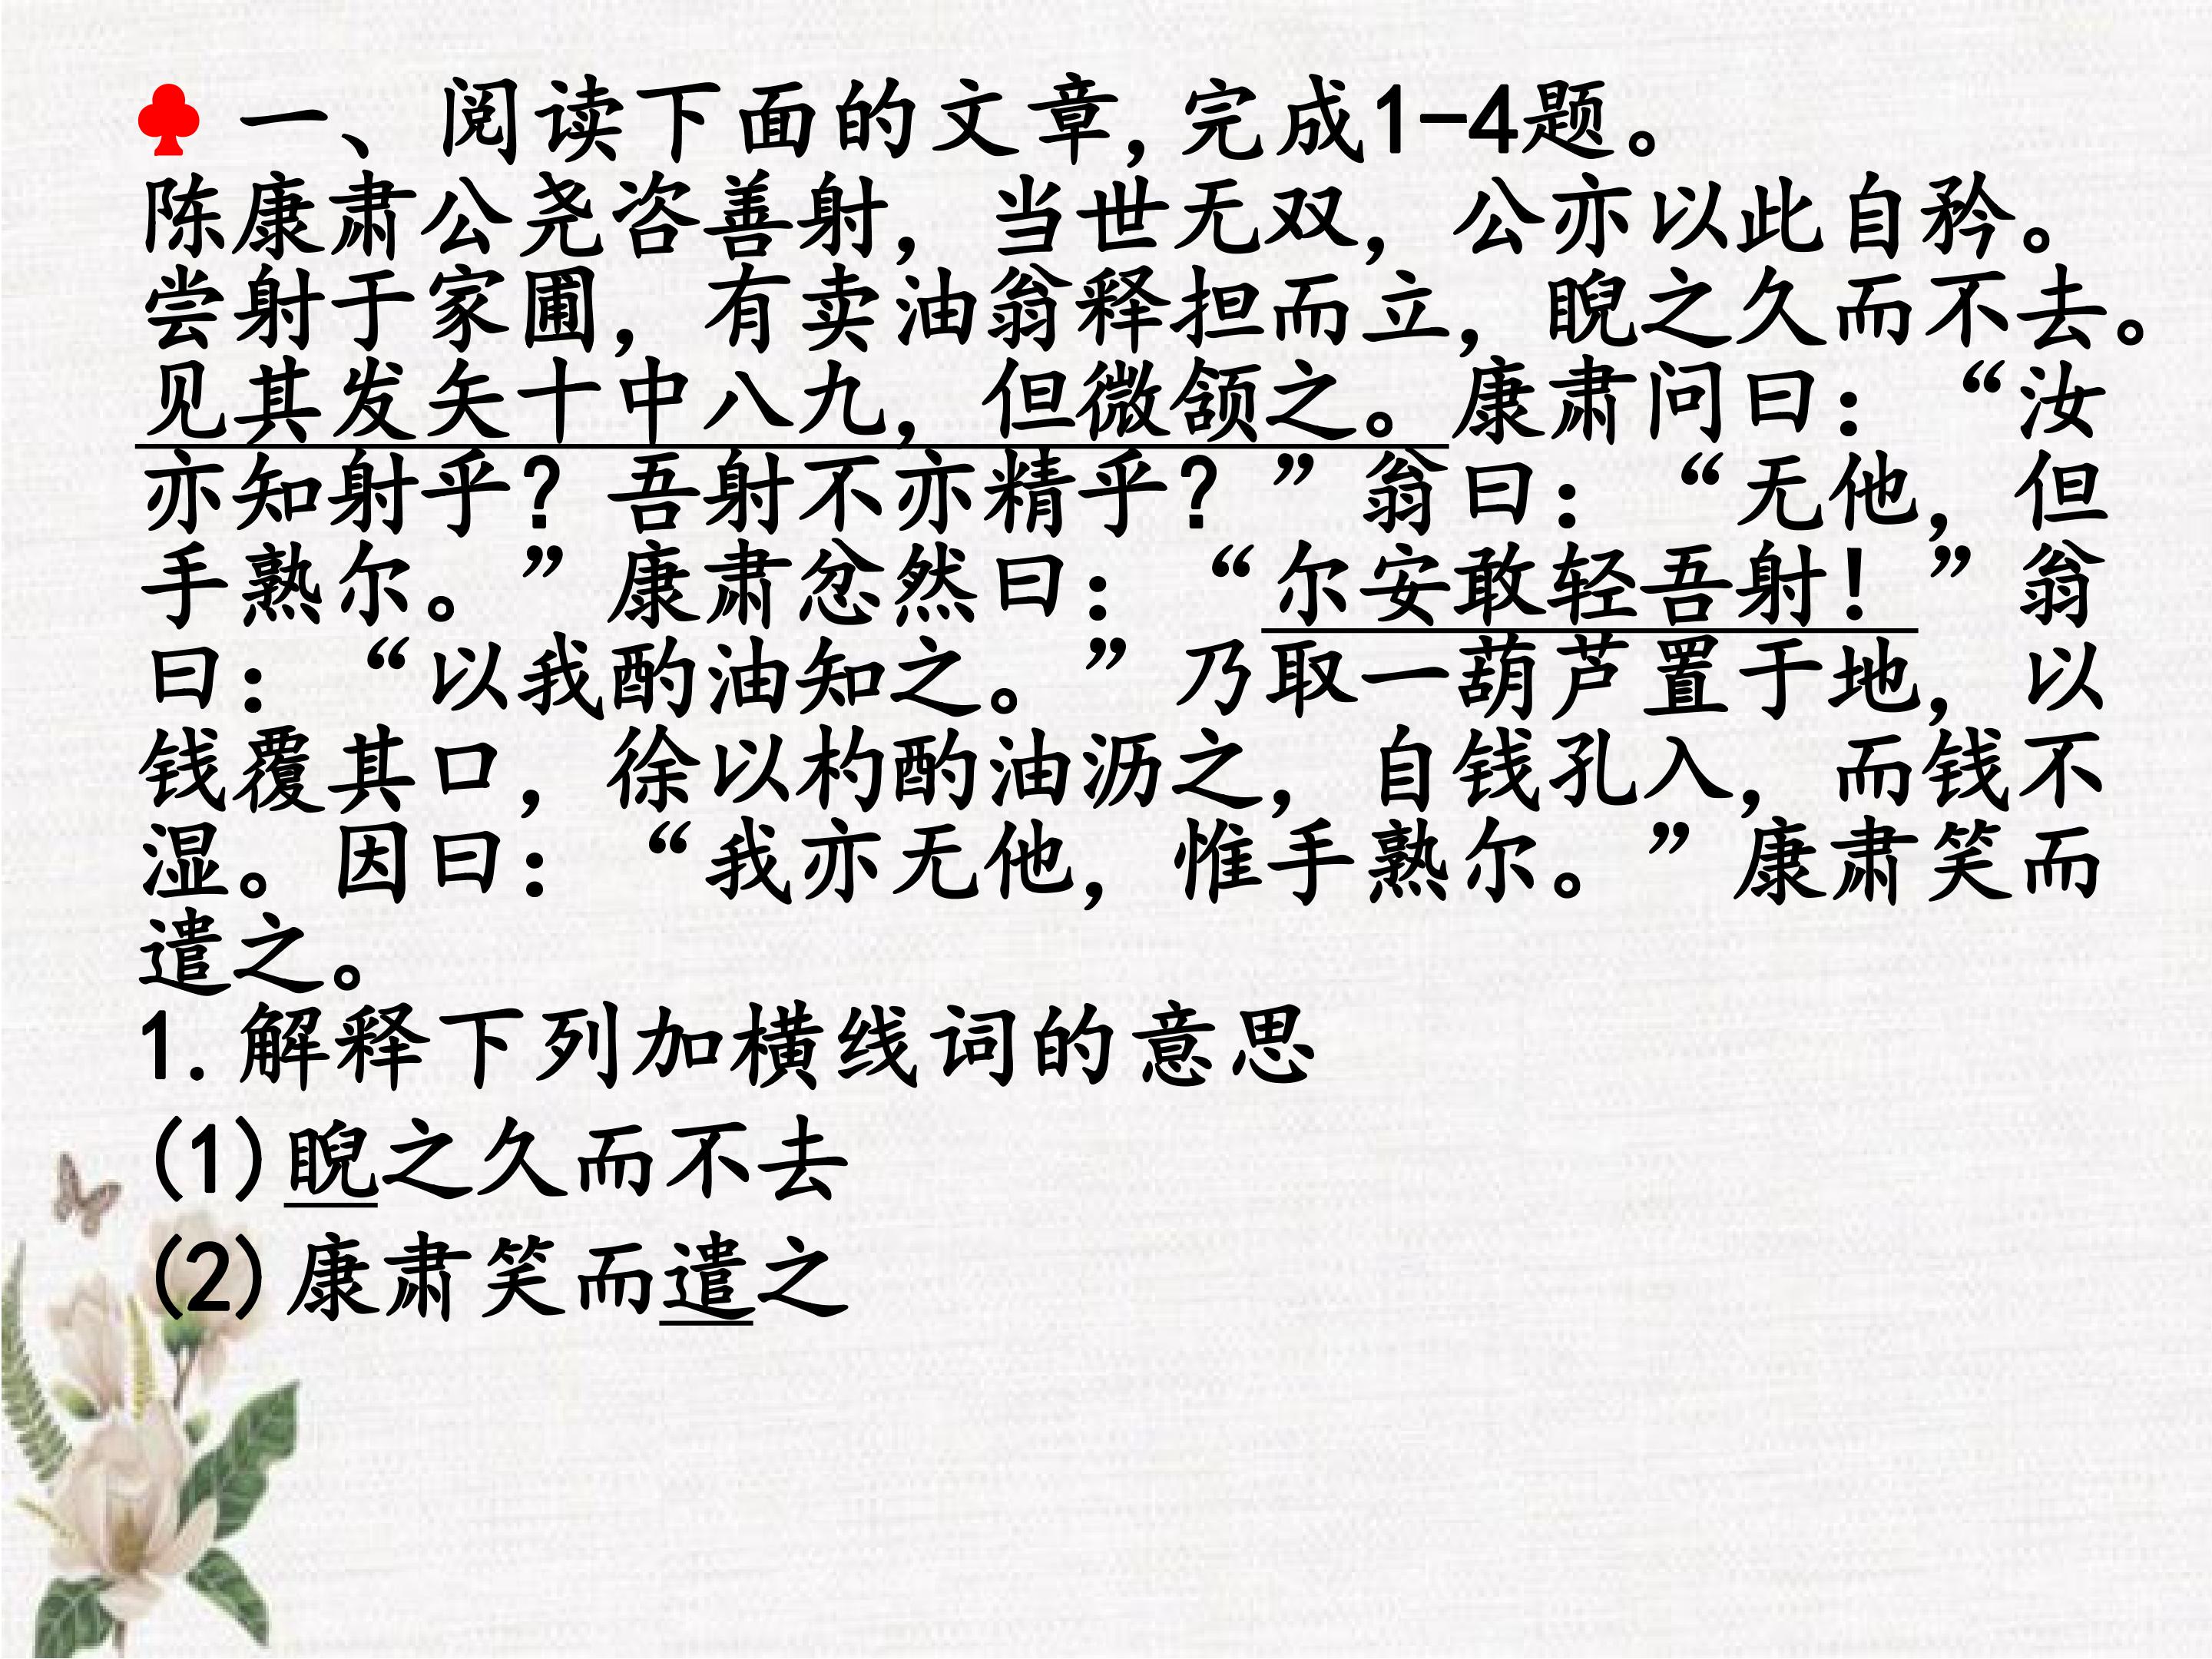 ♣ 一、阅读下面的文章,完成1-4题。
陈康肃公尧咨善射，当世无双，公亦以此自矜。
尝射于家圃，有卖油翁释担而立，睨之久而不去。
见其发矢十中八九，但微颔之。康肃问曰：“汝
亦知射乎？吾射不亦精乎？”翁曰：“无他，但
手熟尔。”康肃忿然曰：“尔安敢轻吾射！”翁
曰：“以我酌油知之。”乃取一葫芦置于地，以
钱覆其口，徐以杓酌油沥之，自钱孔入，而钱不
湿。因曰：“我亦无他，惟手熟尔。”康肃笑而
遣之。
1.解释下列加横线词的意思
(1)睨之久而不去
(2)康肃笑而遣之